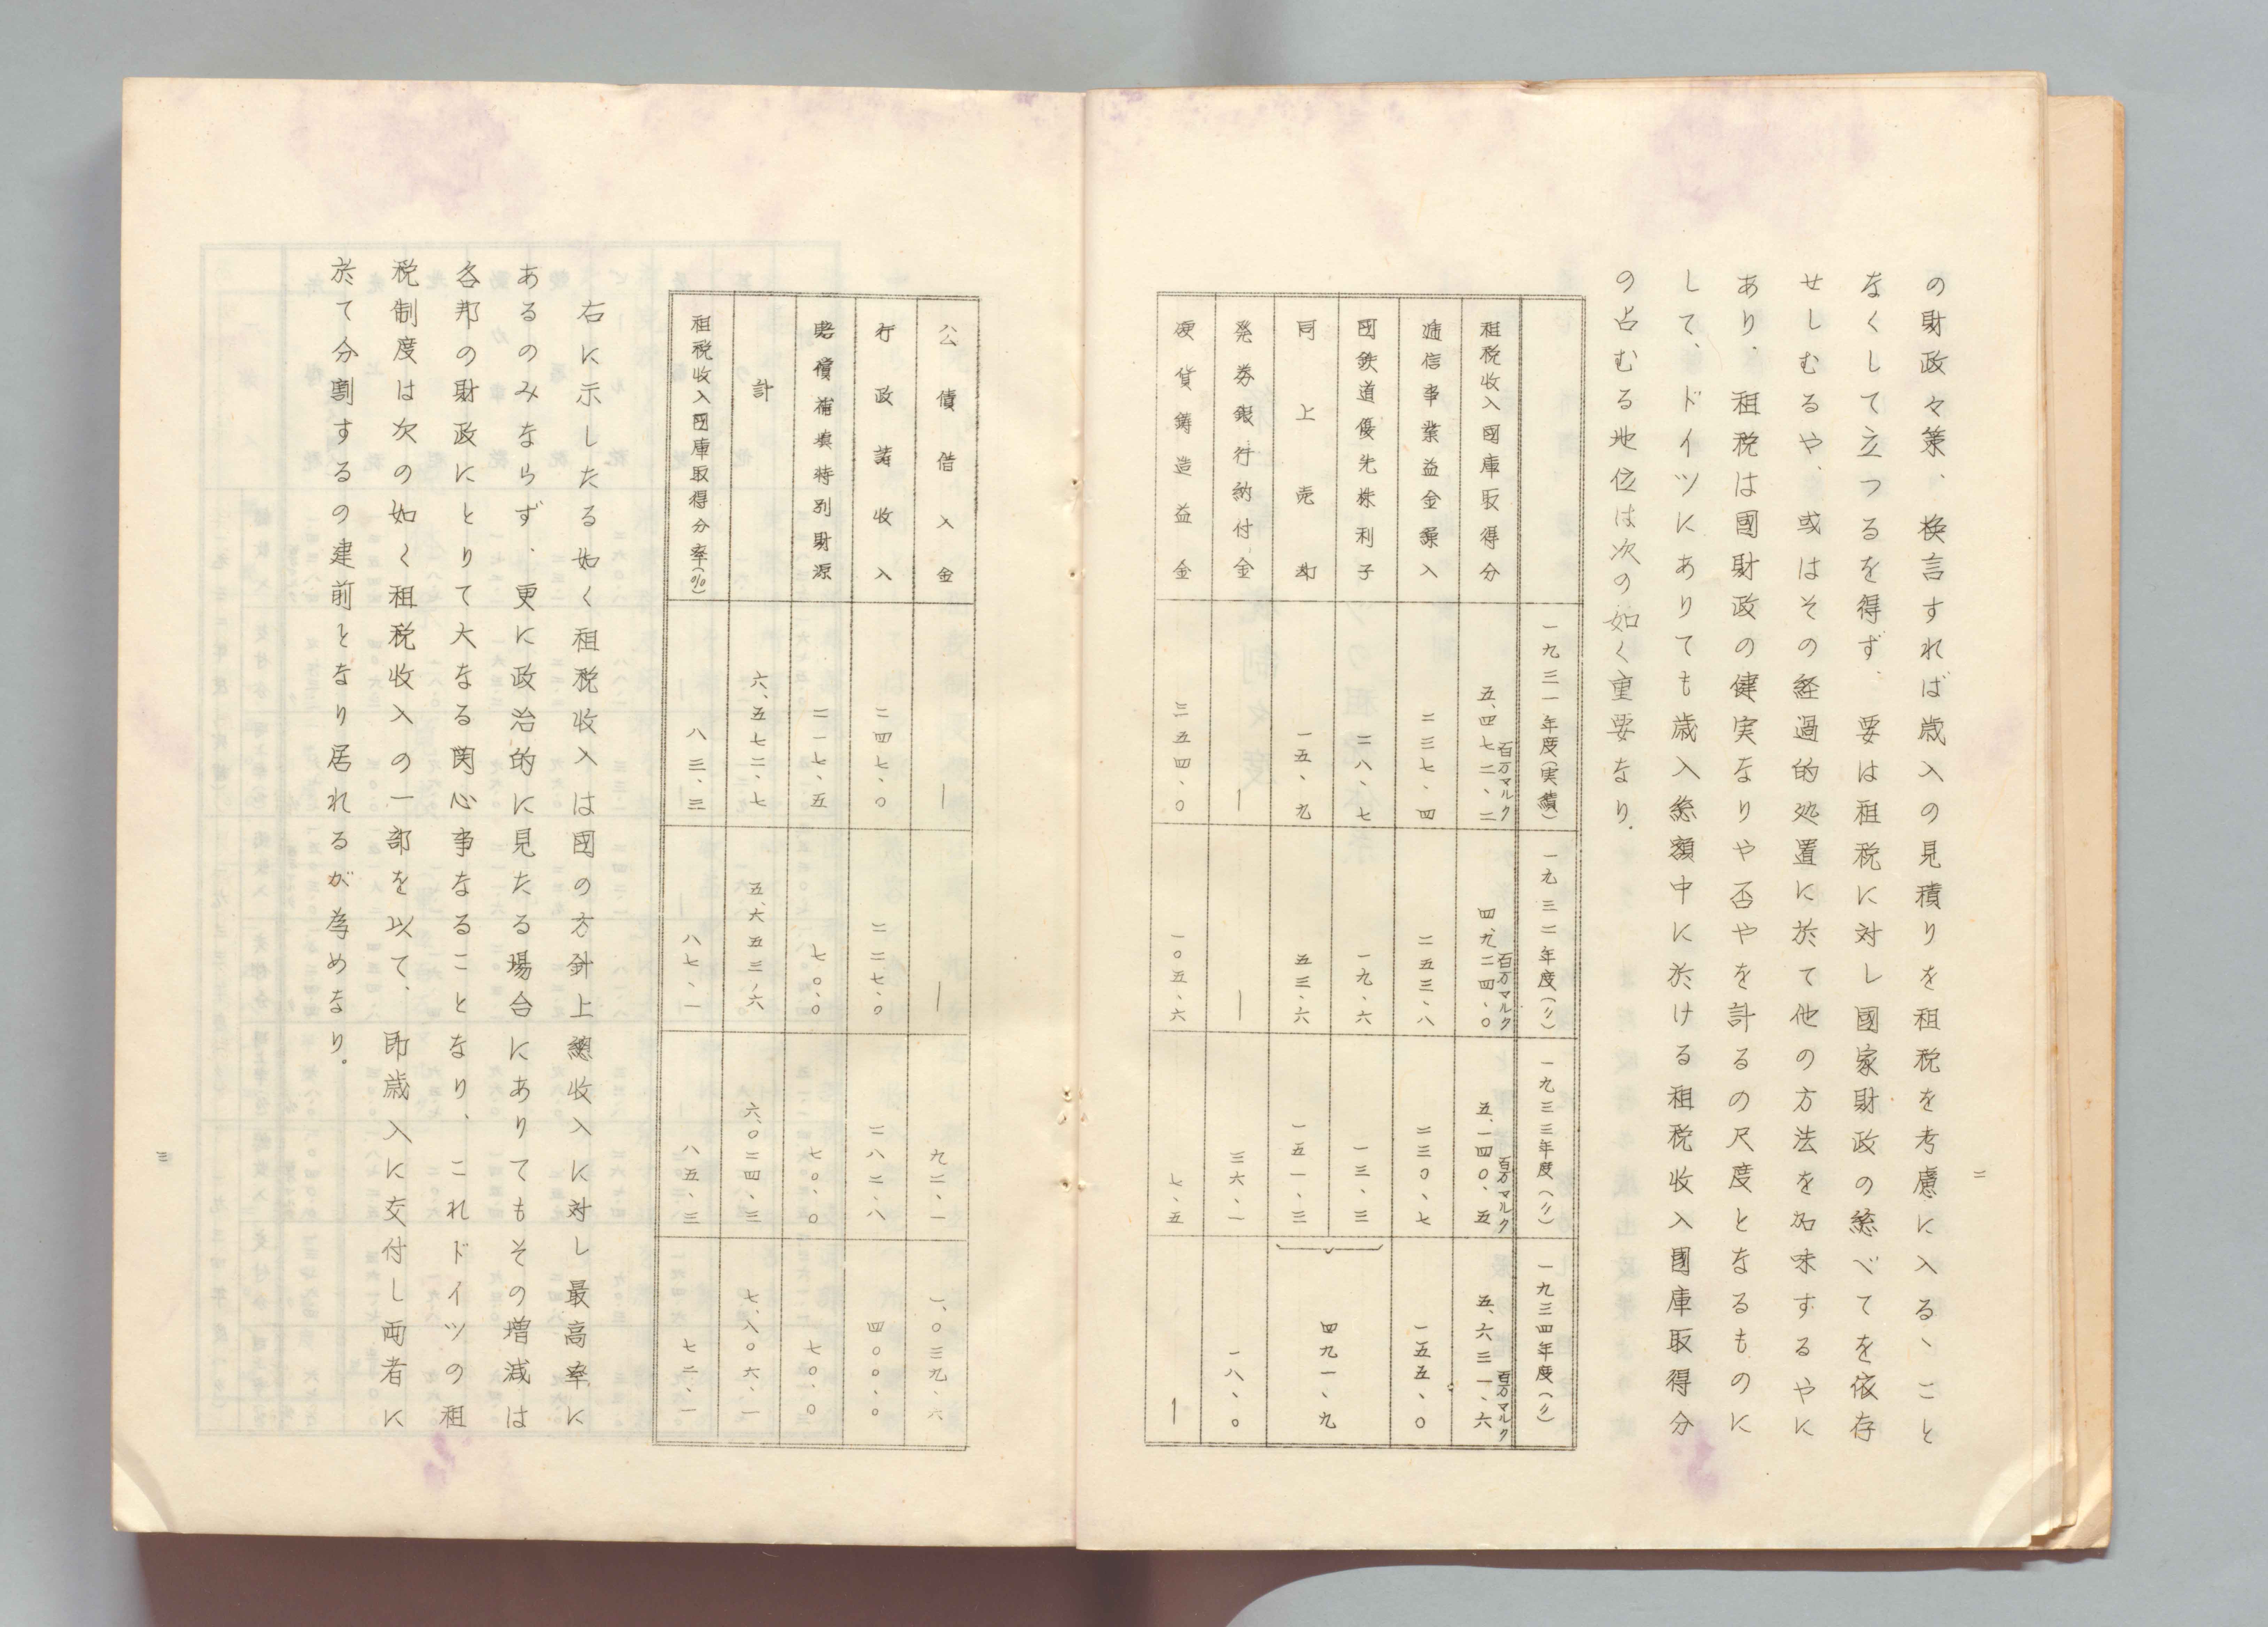 二
の財政々策、換言すれば歳入の見積りを租税を考慮に入るゝこと
なくして立つるを得ず、要は租税に対し國家財政の総べてを依存
せしむるや、或はその経過的処置に於て他の方法を加味するやに
あり、租税は國財政の健実なりや否やを計るの尺度となるものに
して、ドイツにありても歳入総額中に於ける租税收入國庫取得分
の占むる地位は次の如く重要なり。
一九三一年度(実績) 一九三二年度(〃) 一九三三年度(〃) 一九三四年度(〃)
百万マルク 百万マルク 百万マルク 百万マルク
租税收入國庫取得分 五、四七二、二 四、九二四、〇 五、一四〇、五 五、六三一、六
逓信事業益金繰入 二三七、四 二五三、八 二三〇、七 一五五、〇
國鉄道優先株利子 二八、七 一九、六 一三、三
同上売却 一五、九 五三、六 一五一、三 四九一、九
発券銀行納付金 ― ― 三六、一 一八、〇
硬貨鋳造益金 三五四、〇 一〇五、六 七、五 ―
公債借入金 ― ― 九二、一 一、〇三九、六
行政諸收入 二四七、〇 二二七、〇 二八二、八 四〇〇、〇
賠償補填特別財源 二一七、五 七〇、〇 七〇、〇 七〇、〇
計 六、五七二、七 五、六五三、六 六、〇二四、三 七、八〇六、一
租税收入國庫取得分率(%) 八三、三 八七、一 八五、三 七二、一
右に示したる如く租税收入は國の方針上総收入に対し最高率に
あるのみならず、更に政治的に見たる場合にありてもその増減は
各邦の財政にとりて大なる関心事なることなり、これドイツの租
税制度は次の如く租税收入の一部を以て、即歳入に交付し両者に
於て分割するの建前となり居れるが為めなり。
三